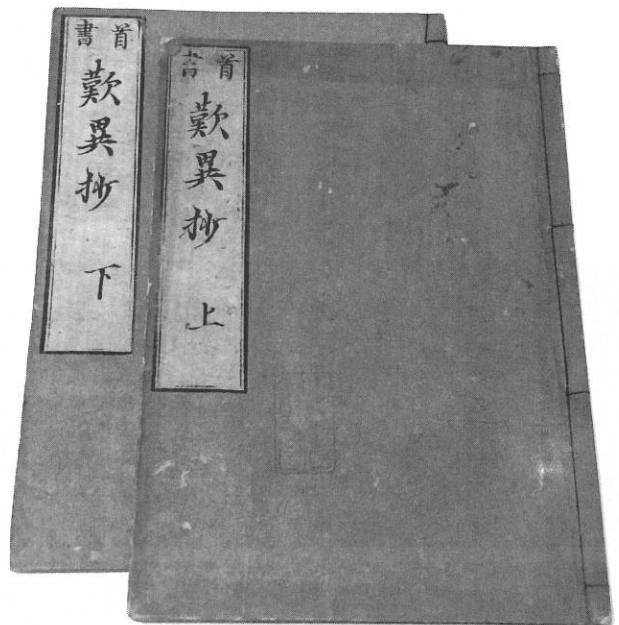 首書
歎異抄 上
首書
歎異抄 下